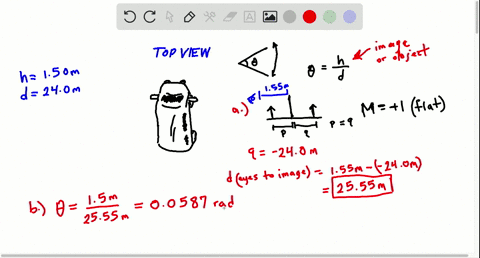 TOP VIEW
h = 1.50m
d = 24.0m
θ
θ = h/d
image or object
a.)
1.55m
P q
P = q
M = +1 (flat)
q = -24.0m
d (eyes to image) = 1.55m - (-24.0m)
= 25.55m
b.) θ = 1.5m/25.55m = 0.0587 rad